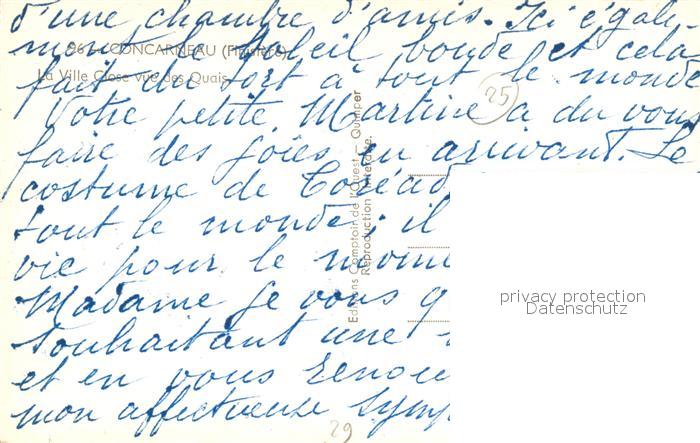 d'une chambre d'amis. Ici égale-
ment le soleil boude et cela
96 - CONCARNEAU (Finistère)
fait du tort à tout le monde
La Ville Close vue des Quais
Votre petite Martine a du vous
25
faire des joies en arrivant. Le
costume de Toréad
tout le monde; il
vie pour le mome
Madame je vous q
souhaitant une
et en vous renou
mon affectueuse symp
29
Editions Comptoir de l'Ouest - Quimper
Reproduction Interdite.
privacy protection
Datenschutz